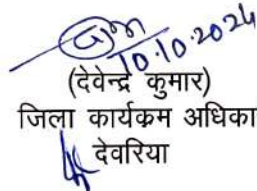 10.10.2024
(देवेन्द्र कुमार)
जिला कार्यक्रम अधिका
देवरिया